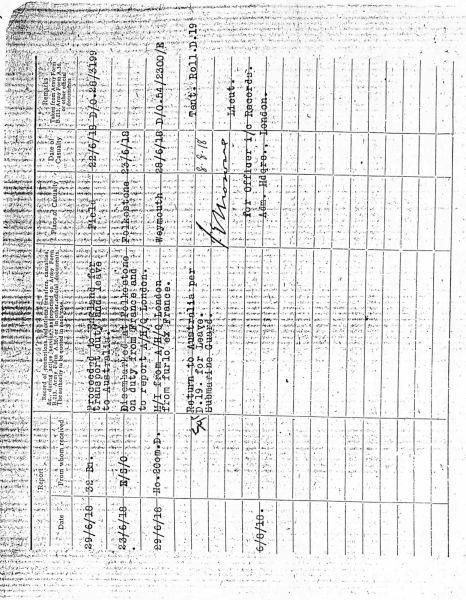 Report
Date
From whom received
Record of promotions, reductions, transfers, casualties,
etc., during active service, as reported on Army Form
B.213, Army Form A.36, or in other official documents.
The authority to be quoted in each case.
Place of Casualty
Date of
Casualty
Remarks
Taken from Army Form
B.213, Army Form A.36,
or other official
documents.
29/6/18 32 Bn. Proceeded to England for Field 22/6/18 D/O.28/3199
transport duty and leave
to Australia.
23/6/18 E/S/O Disembarked at Folkestone Folkestone 23/6/18
on duty from France and
to report A/H/Q London.
29/6/18 No.2Com.D. M/I from A/H/Q London Weymouth 28/6/18 D/O.54/2300/E
from furlo' ex France.
Return to Australia per 8-8-18 Tent. Roll.D.19
D.19. for Leave.
Submarine Guard.
Lieut.
6/8/18. for officer i/c Records.
Adm. Hdqrs., London.